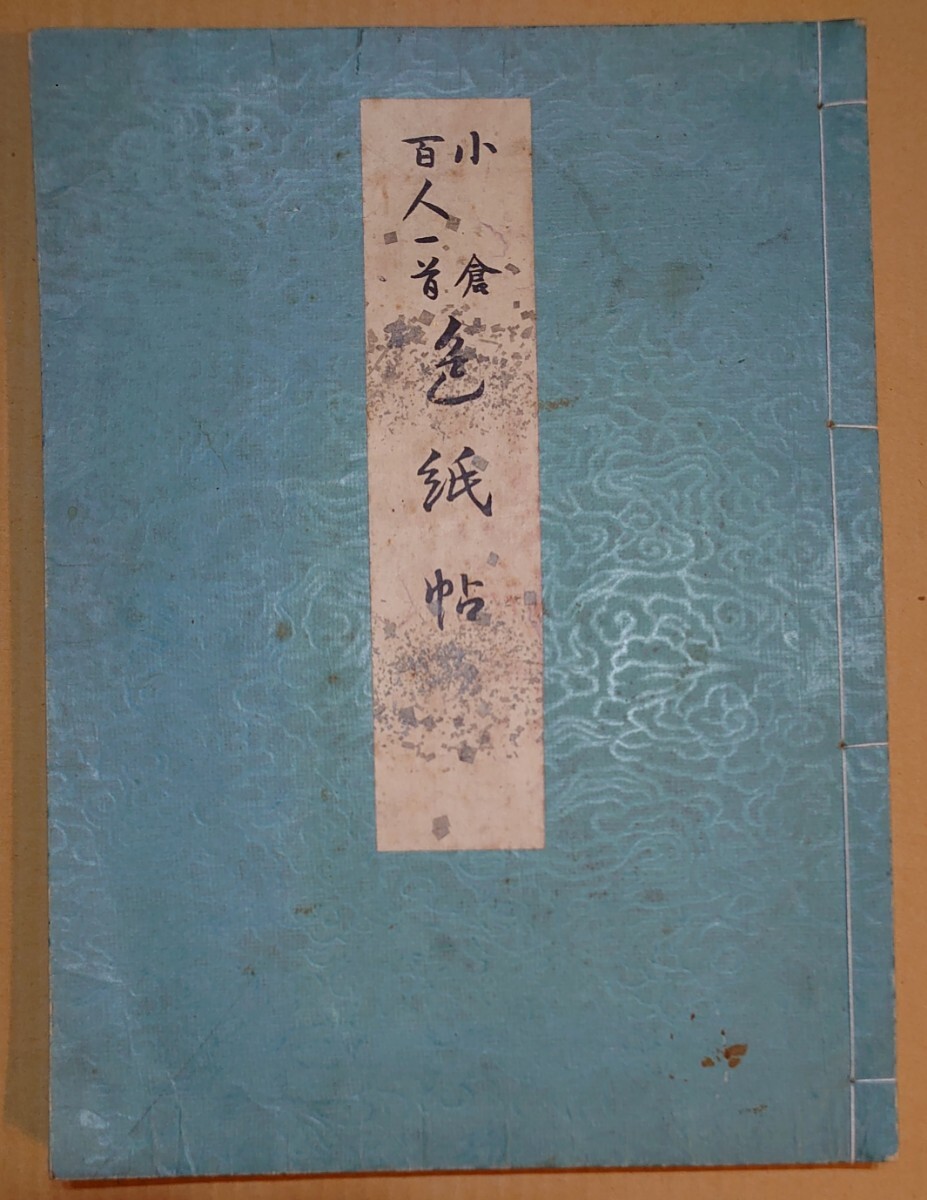 小倉
百人一首
色紙帖